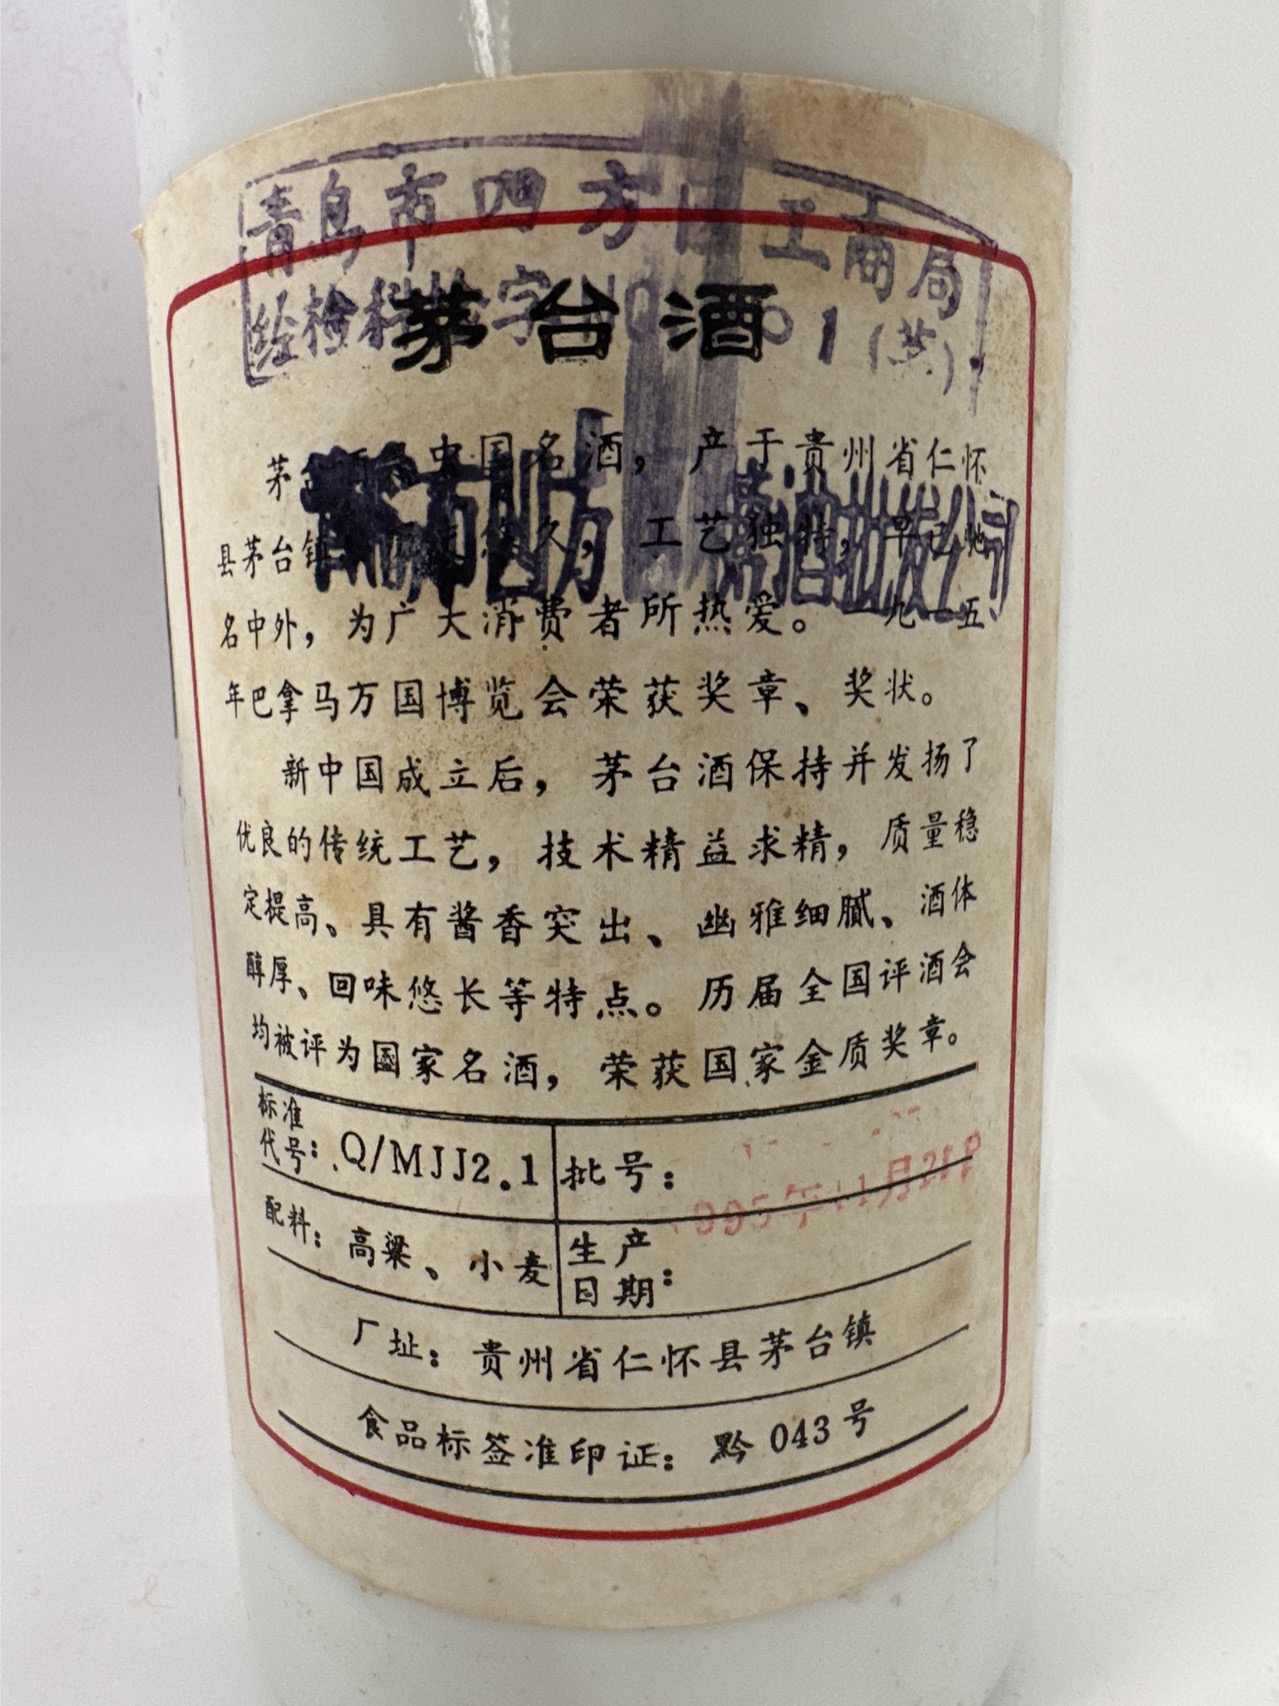 青岛市四方区工商局
经检科 字 1(茅)
茅台酒
茅 中国名酒，产于贵州省仁怀
县茅台镇 悠久，工艺独特，早已驰
名中外，为广大消费者所热爱。一九一五
年巴拿马万国博览会荣获奖章、奖状。
新中国成立后，茅台酒保持并发扬了
优良的传统工艺，技术精益求精，质量稳
定提高、具有酱香突出、幽雅细腻、酒体
醇厚、回味悠长等特点。历届全国评酒会
均被评为国家名酒，荣获国家金质奖章。
标准代号：Q/MJJ2.1
批号：
995年11月21日
配料：高粱、小麦
生产日期：
厂址：贵州省仁怀县茅台镇
食品标签准印证：黔043号